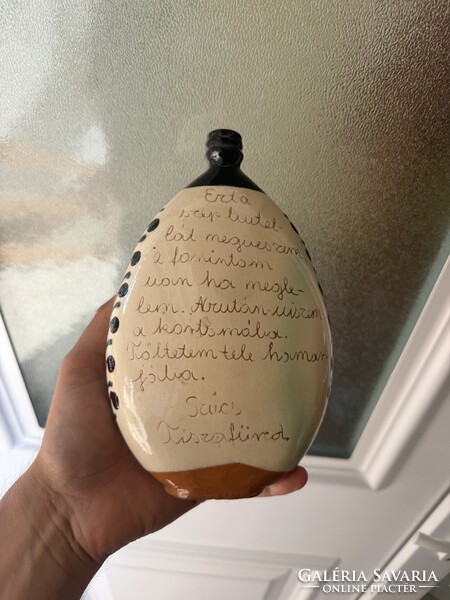 Ezt a
szép butel
lát megveszem
2 forintom
van ha megle-
lem. Azután viszem
a kortsmába.
Töltetem tele hamar
jába.
Tiszafüred.
GALÉRIA SAVARIA
ONLINE PIACTÉR